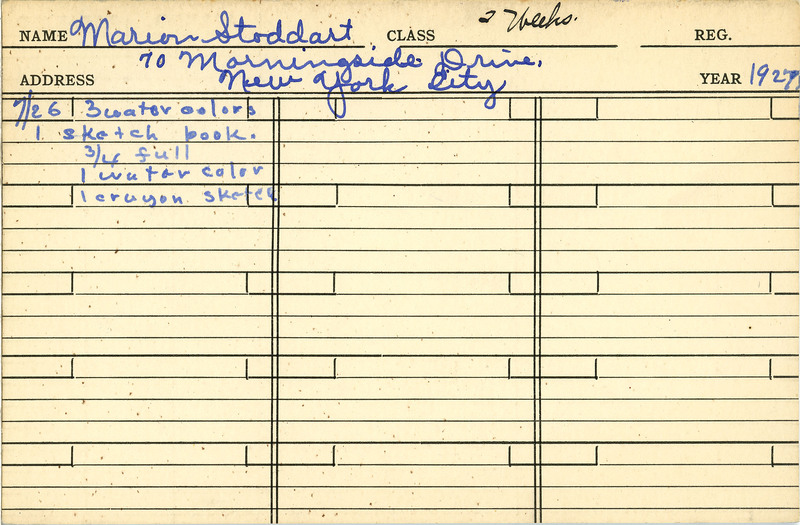 NAME Marion Stoddart CLASS 2 Weeks. REG.
70 Morningside Drive.
ADDRESS New York City YEAR 1927
7/26 3 water colors
1 sketch book.
3/4 full
1 water color
1 crayon sketch